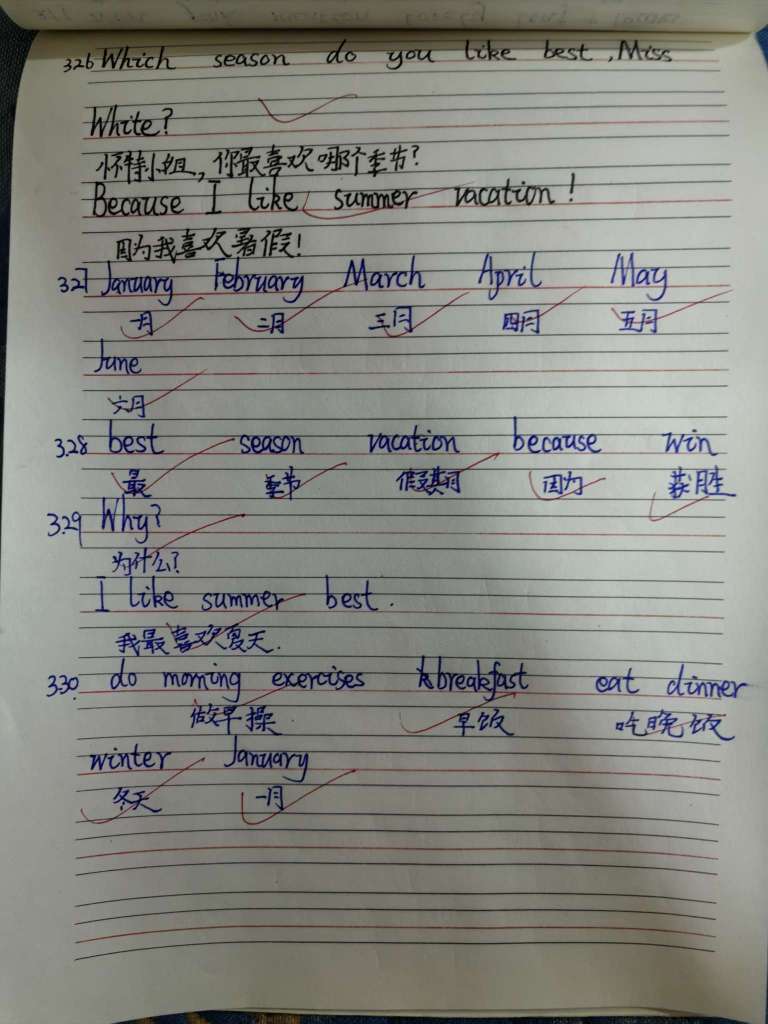 3.26 Which season do you like best, Miss
White?
怀特小姐,你最喜欢哪个季节?
Because I like summer vacation!
因为我喜欢暑假!
3.27 January February March April May
一月 二月 三月 四月 五月
June
六月
3.28 best season vacation because win
最 季节 假期 因为 获胜
3.29 Why?
为什么?
I like summer best.
我最喜欢夏天.
3.30 do morning exercises breakfast eat dinner
做早操 早饭 吃晚饭
winter January
冬天 一月